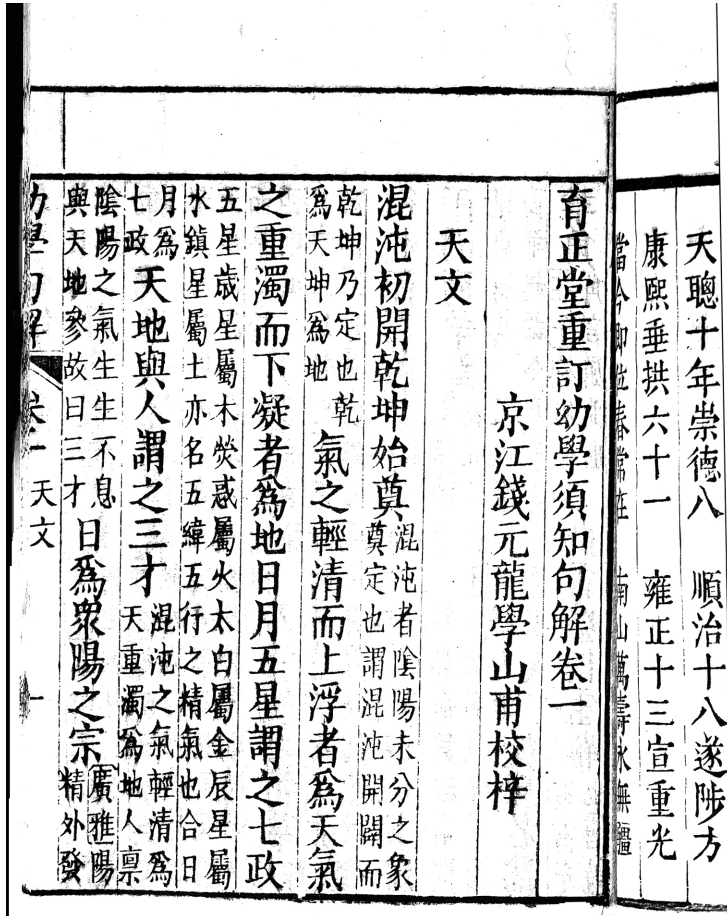 天聰十年崇德八　順治十八遂陟方
康熙垂拱六十一　雍正十三宣重光
當今即位春常在　南山萬壽永無疆
育正堂重訂幼學須知句解卷一
京江錢元龍學山甫校梓
天文
混沌初開乾坤始奠混沌者陰陽未分之象奠定也謂混沌開闢而
乾坤乃定也乾爲天坤爲地氣之輕清而上浮者爲天氣
之重濁而下凝者爲地日月五星謂之七政
五星歲星屬木熒惑屬火太白屬金辰星屬水鎮星屬土亦名五緯五行之精氣也合日
月爲七政天地與人謂之三才混沌之氣輕清爲天重濁爲地人禀
陰陽之氣生生不息與天地參故曰三才日爲衆陽之宗廣雅陽精外發
幼學句解　卷一　天文　一